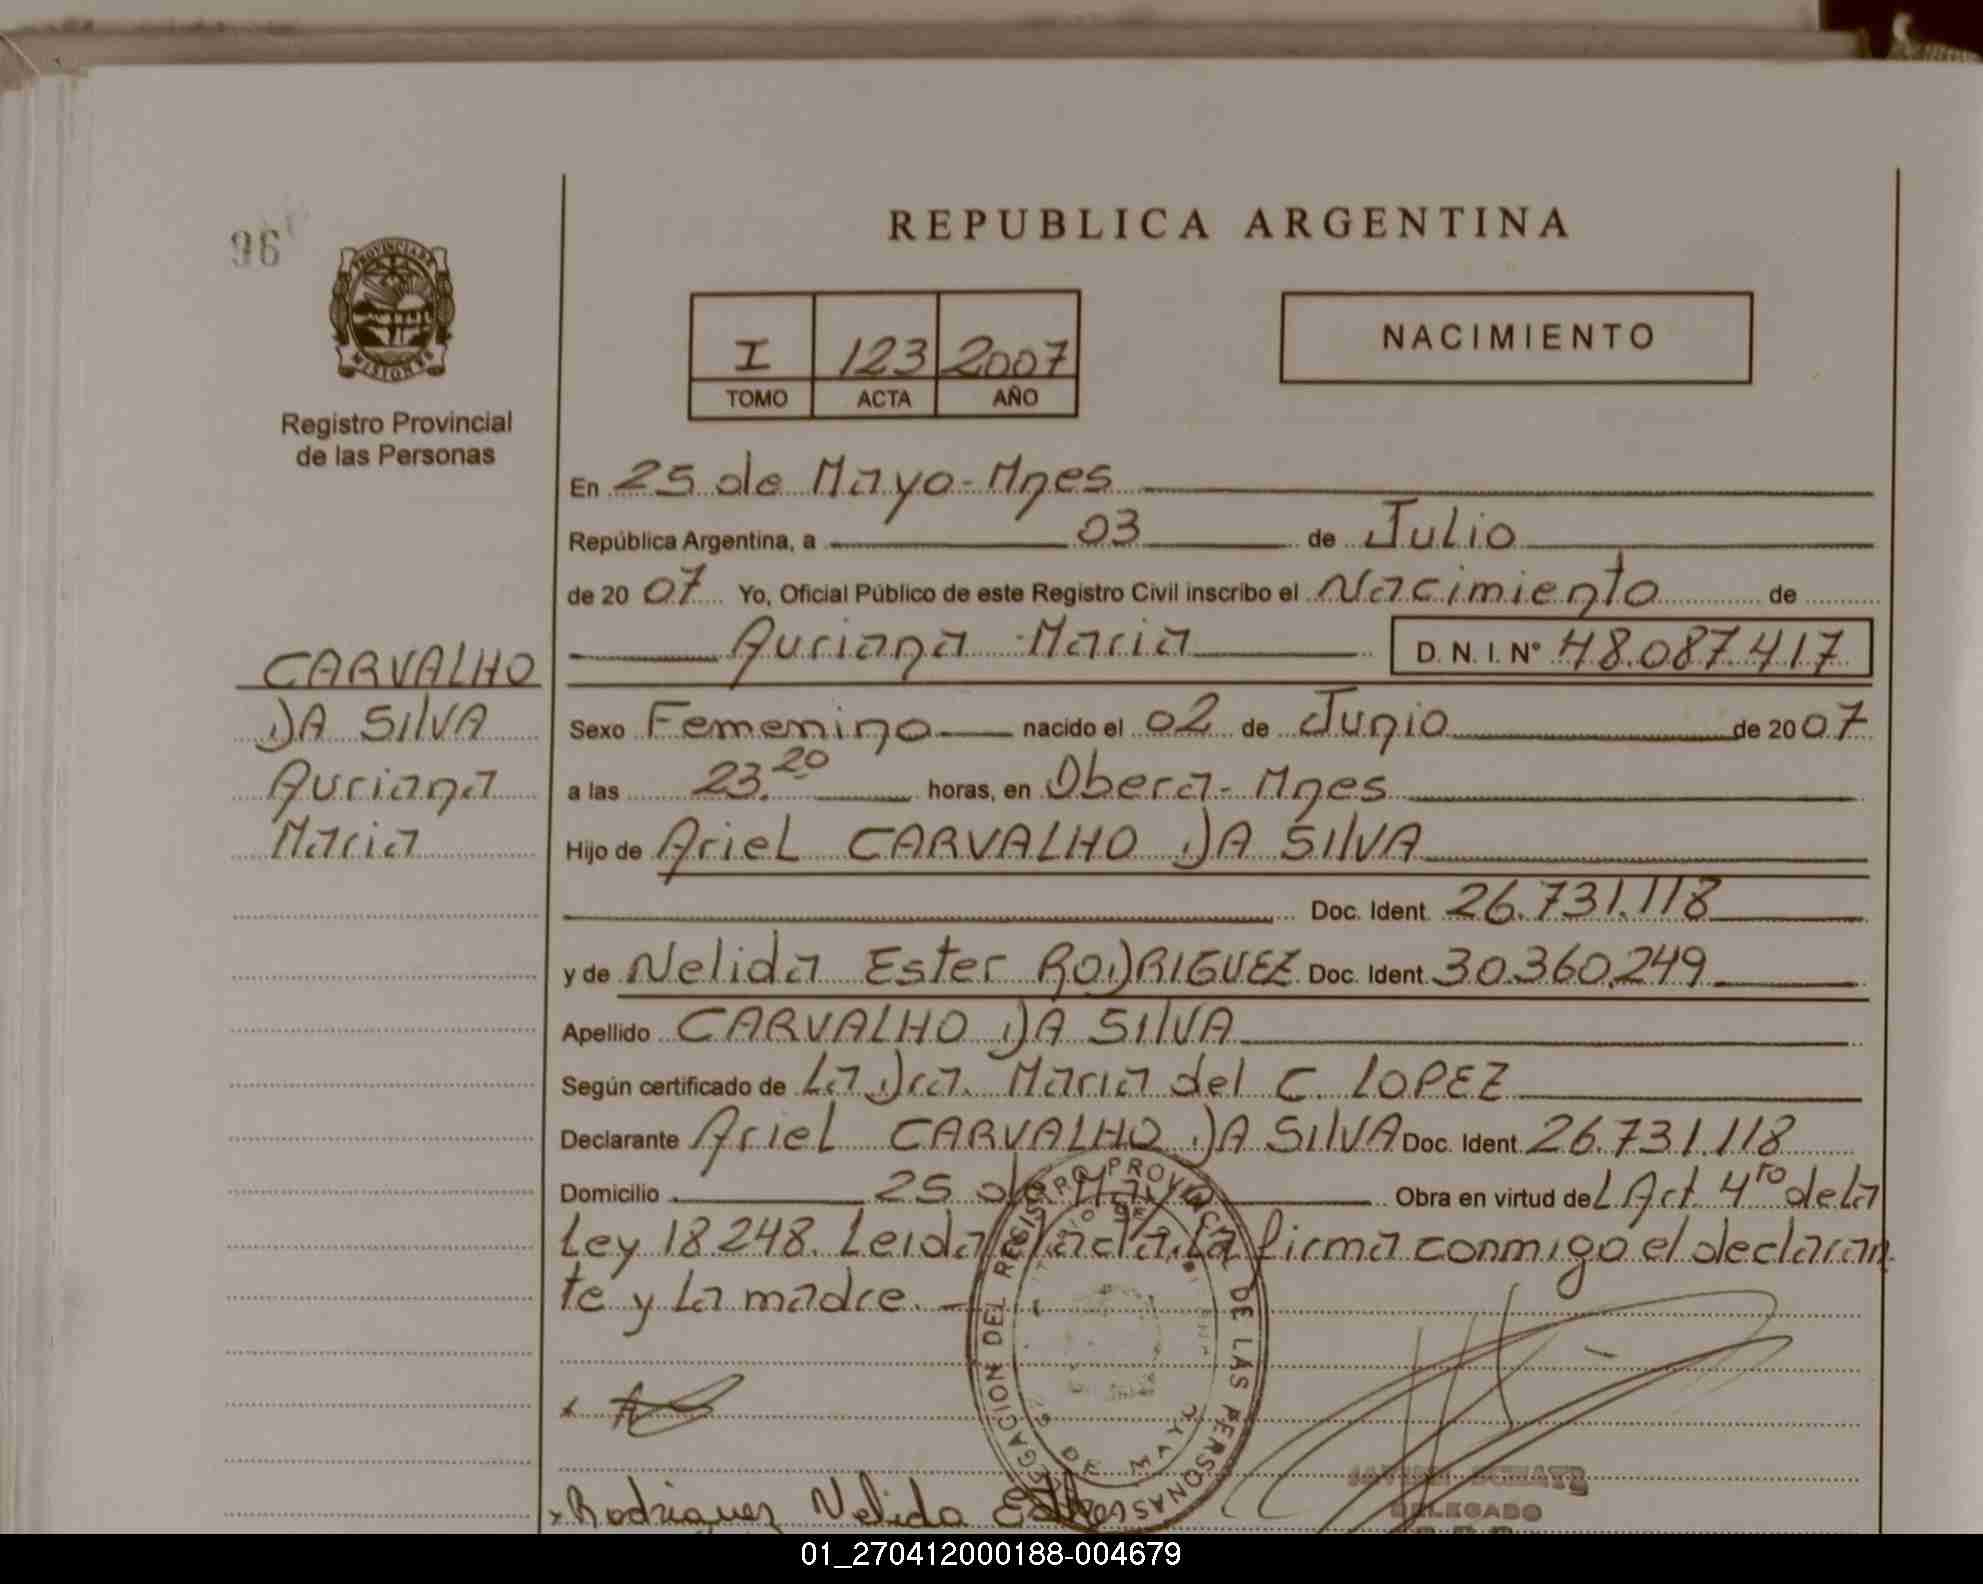 96
REPUBLICA ARGENTINA
PROVINCIA DE
MISIONES
I 123 2007
TOMO ACTA AÑO
NACIMIENTO
Registro Provincial
de las Personas
En 25 de Mayo - Mnes
República Argentina, a 03 de Julio
de 2007 Yo, Oficial Público de este Registro Civil inscribo el Nacimiento de
Auriana Maria D. N. I. N° 48.087.417
CARVALHO
DA SILVA
Auriana
Maria
Sexo Femenino nacido el 02 de Junio de 2007
a las 23.20 horas, en Obera - Mnes
Hijo de Ariel CARVALHO DA SILVA
Doc. Ident. 26.731.118
y de Nelida Ester RODRIGUEZ Doc. Ident. 30.360.249
Apellido CARVALHO DA SILVA
Según certificado de La Dra. Maria del C. LOPEZ
Declarante Ariel CARVALHO DA SILVA Doc. Ident. 26.731.118
Domicilio 25 de Mayo Obra en virtud del Art. 4to de la
Ley 18248. Leida el acta, la firma conmigo el declaran
te y la madre.
DELEGACION DEL REGISTRO PROVINCIAL DE LAS PERSONAS
25 DE MAYO
x Rodriguez Nelida Ester
DELEGADO
01_270412000188-004679